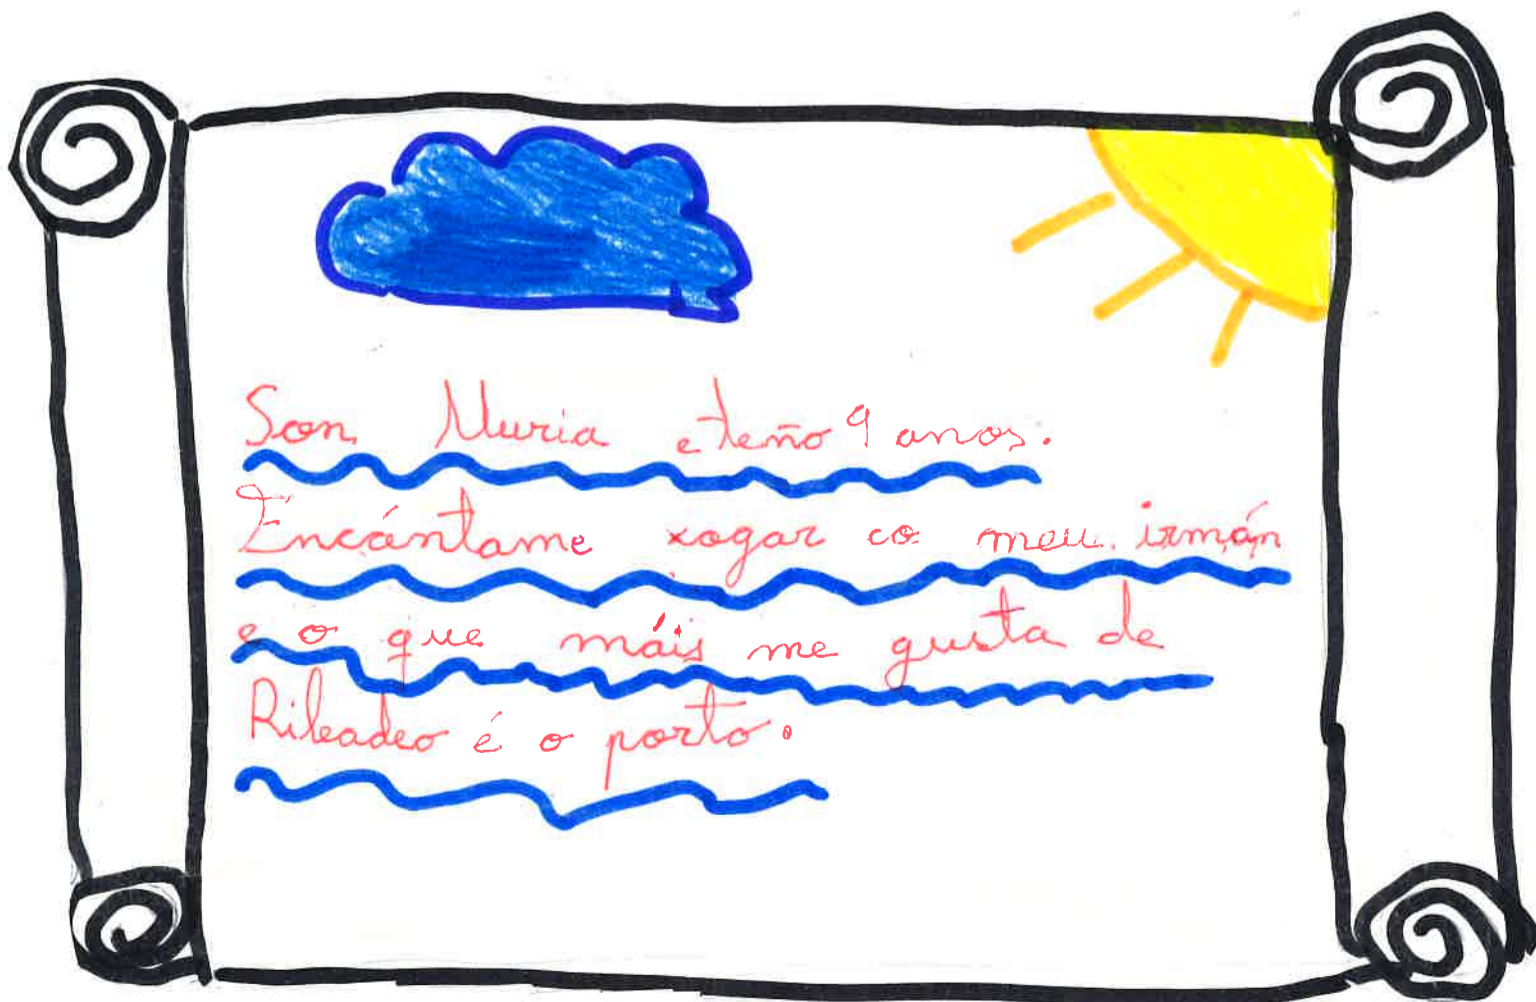 Son Nuria e teño 9 anos.
Encántame xogar co meu irmán
e o que máis me gusta de
Ribadeo é o porto.